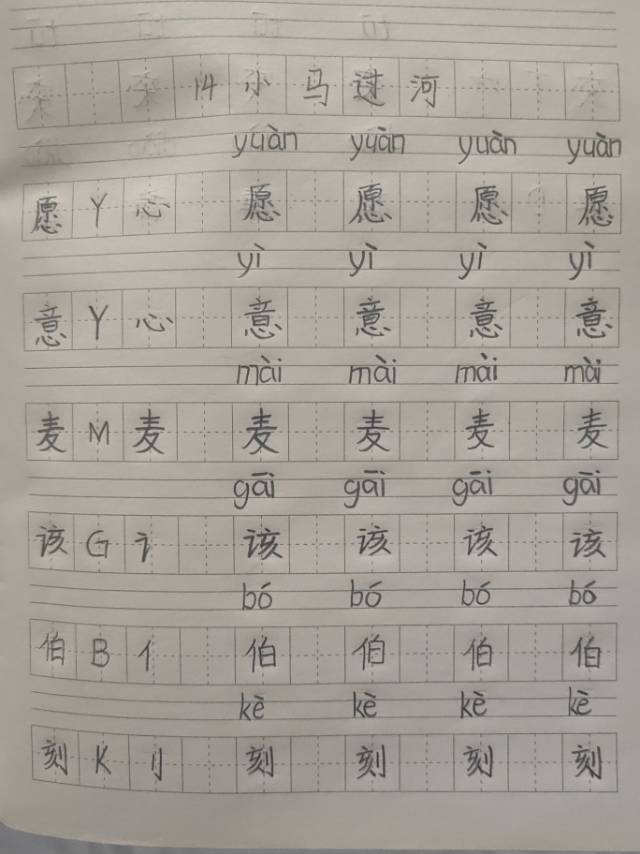 14小马过河
yuàn yuàn yuàn yuàn
愿 Y 心 愿 愿 愿 愿
yì yì yì yì
意 Y 心 意 意 意 意
mài mài mài mài
麦 M 麦 麦 麦 麦 麦
gāi gāi gāi gāi
该 G 讠 该 该 该 该
bó bó bó bó
伯 B 亻 伯 伯 伯 伯
kè kè kè kè
刻 K 刂 刻 刻 刻 刻